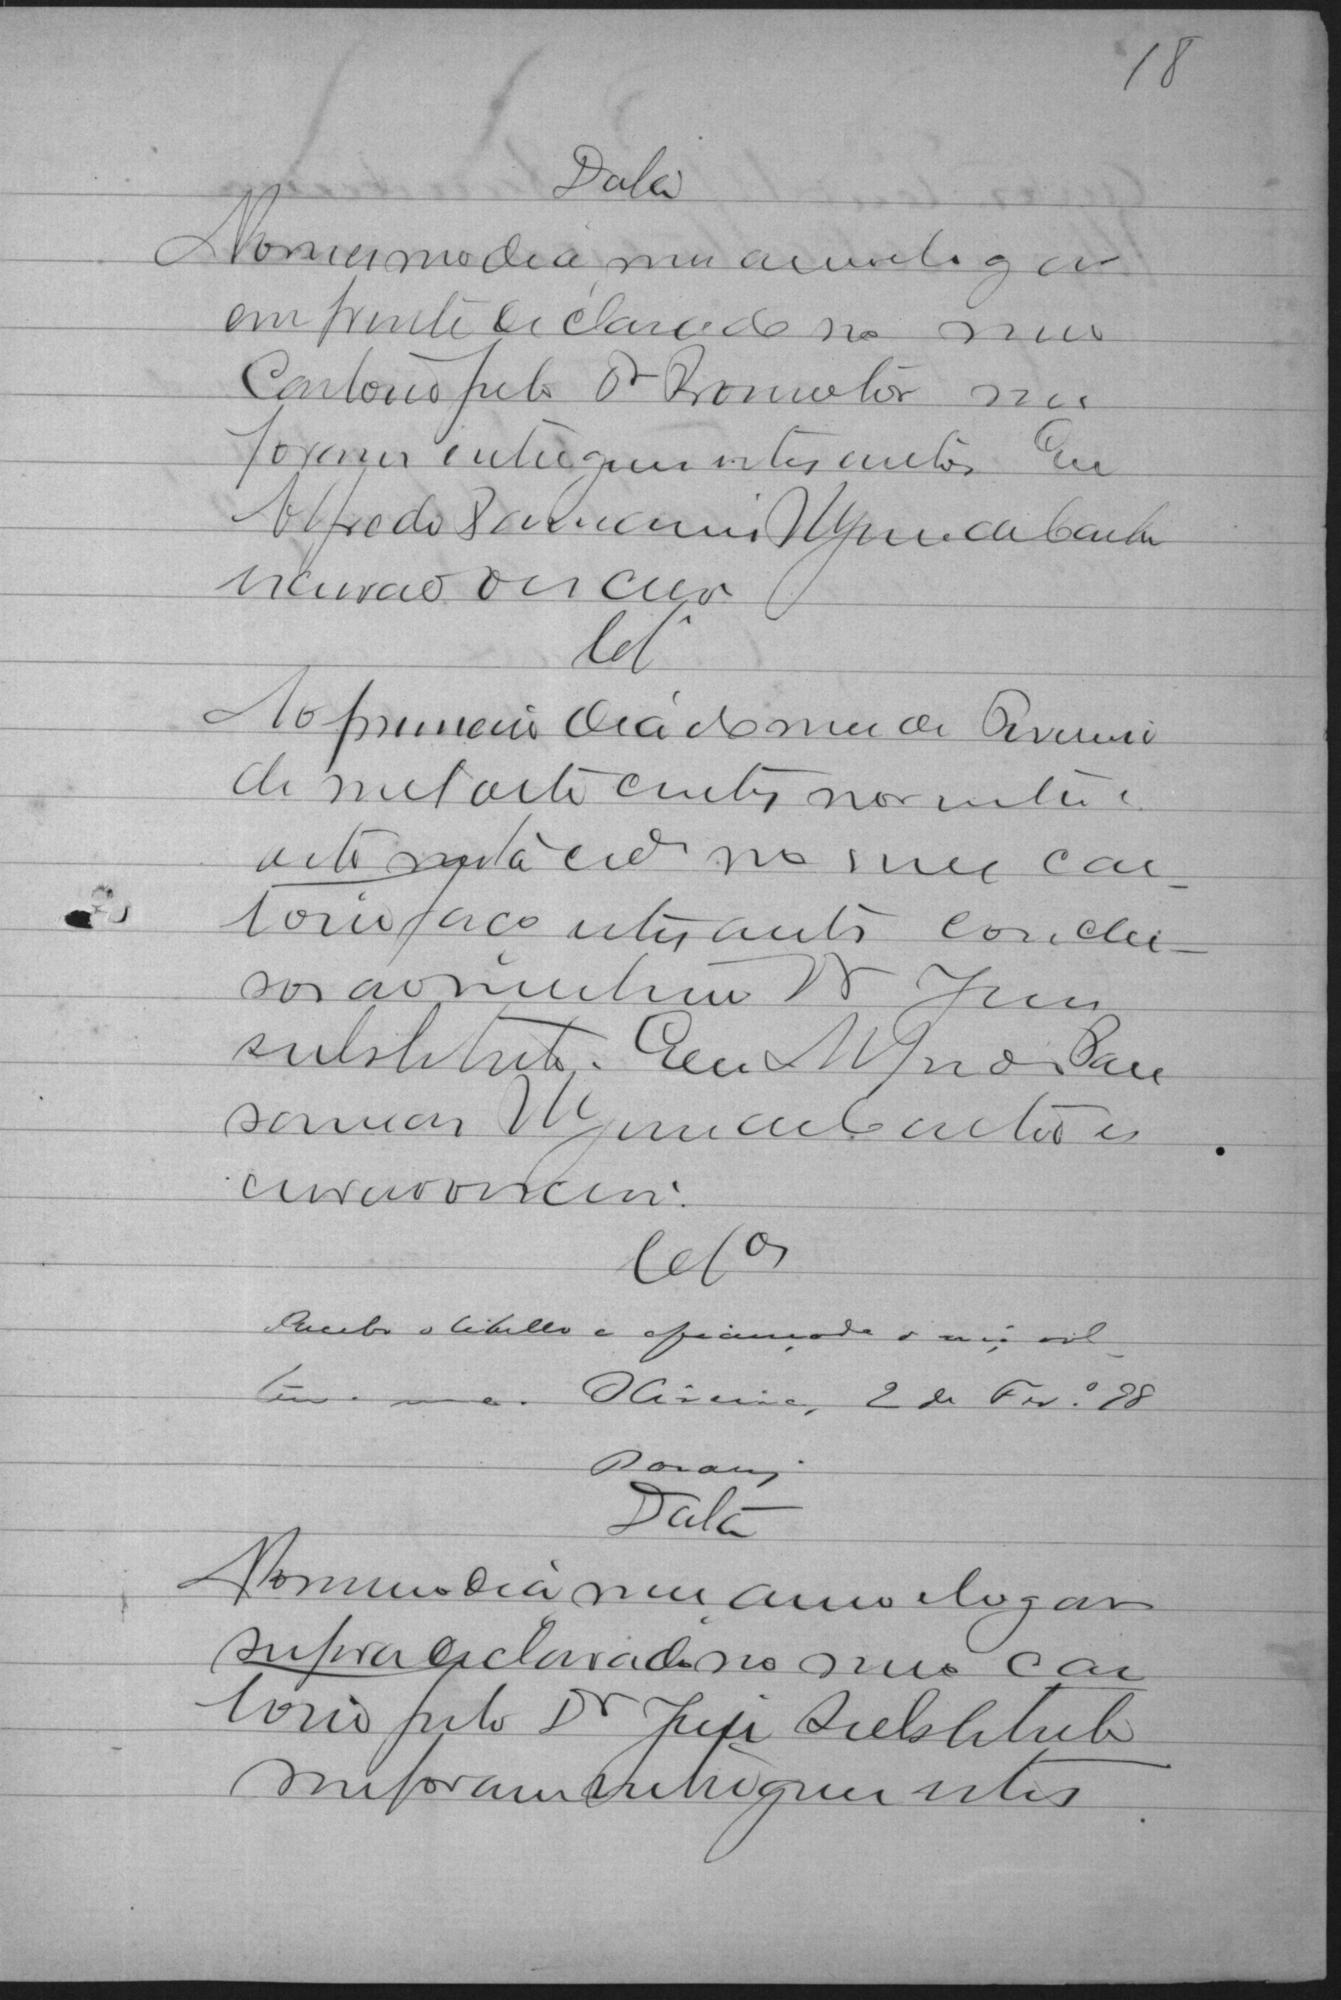 18
Data
No mesmo dia mes anno e logar
em frente declarado no meu
Cartorio pelo Dr Promotor me
foram entregues estes autos Eu
Alfredo
escrivão o escrevi
Cls
Ao primeiro dia do mez de Fevereiro
de mil oito centos noventa e
oito nesta cide no meu car-
torio faço estes autos conclu-
sos ao meritissimo Dr Juiz
substituto. Eu
es
crivão o escrevi.
Clos
Recebo o libello e
Oliveira, 2 de Fevº 98
Data
No mesmo dia mez anno e logar
supra declarado no meu car
torio pelo Dr Juiz Substituto
me foram entregues estes